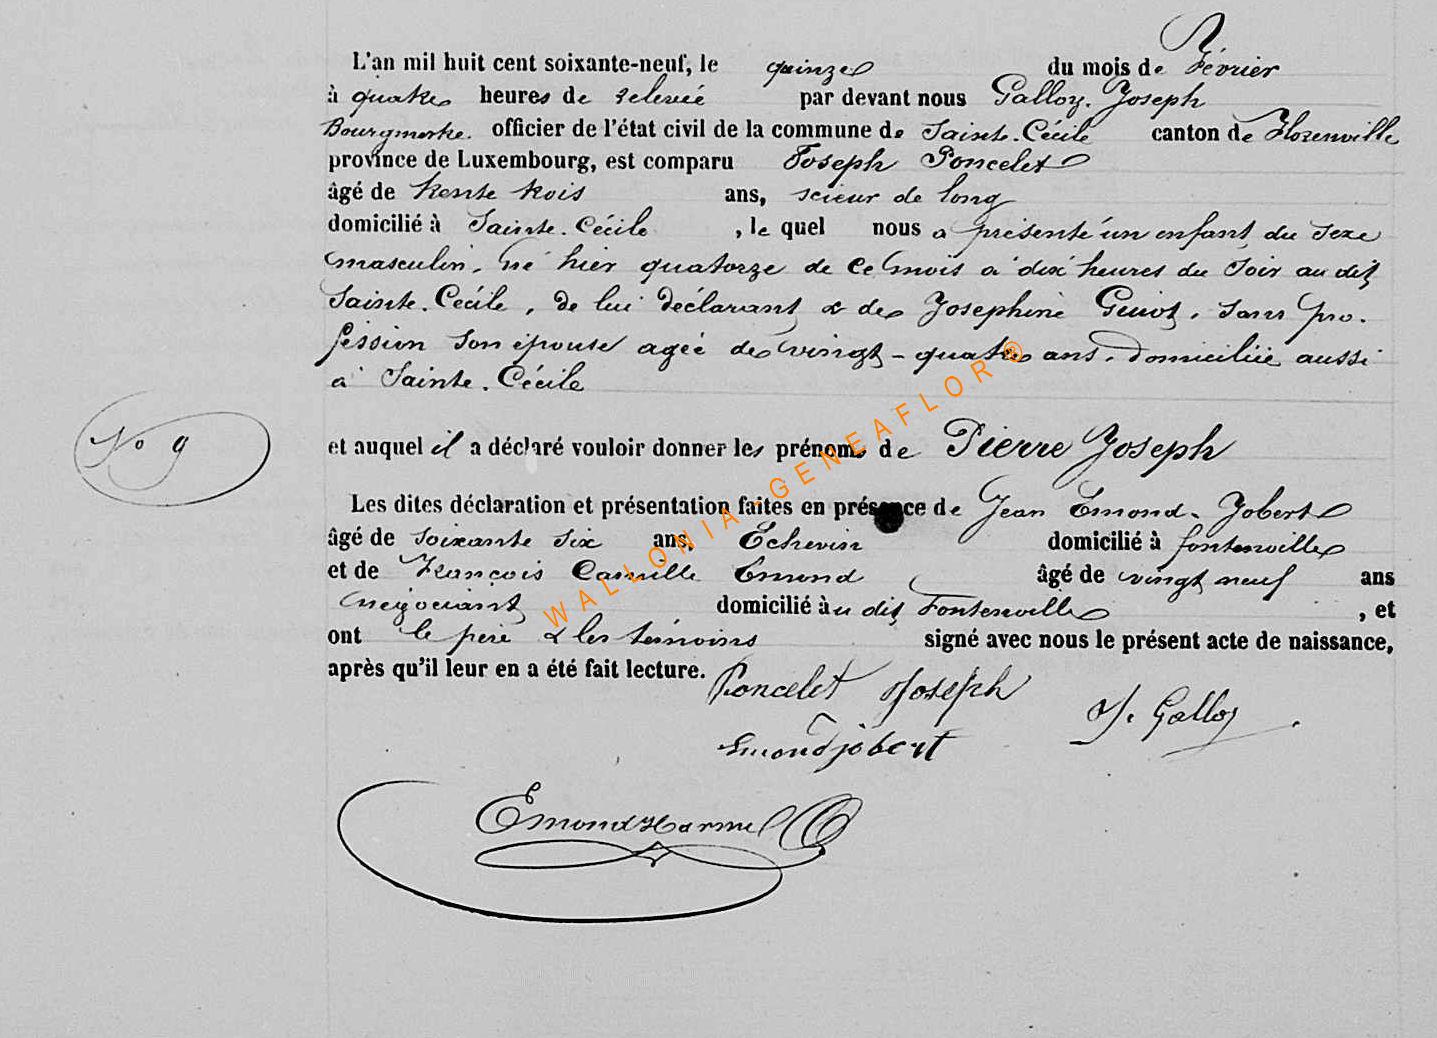 L'an mil huit cent soixante-neuf, le quinze du mois de Février
à quatre heures de relevée par devant nous Galloy Joseph
Bourgmestre officier de l'état civil de la commune de Sainte-Cécile canton de Florenville
province de Luxembourg, est comparu Joseph Poncelet
âgé de trente trois ans, scieur de long
domicilié à Sainte-Cécile, le quel nous a présenté un enfant du sexe
masculin, né hier quatorze de ce mois à dix heures du soir au dit
Sainte-Cécile, de lui déclarant & de Josephine Guiot, sans pro-
fession son épouse agée de vingt-quatre ans, domiciliée aussi
à Sainte-Cécile
No 9
et auquel il a déclaré vouloir donner les prénoms de Pierre Joseph
Les dites déclaration et présentation faites en présence de Jean Emond-Jobert
âgé de soixante six ans, Echevin domicilié à fontenoville
et de François Camille Emond âgé de vingt neuf ans
négociant domicilié au dit Fontenoville, et
ont le père & les témoins signé avec nous le présent acte de naissance,
après qu'il leur en a été fait lecture.
Poncelet Joseph
J. Galloy
Emondjobert
EmondHarmel
WALLONIA-GENEAFLOR®